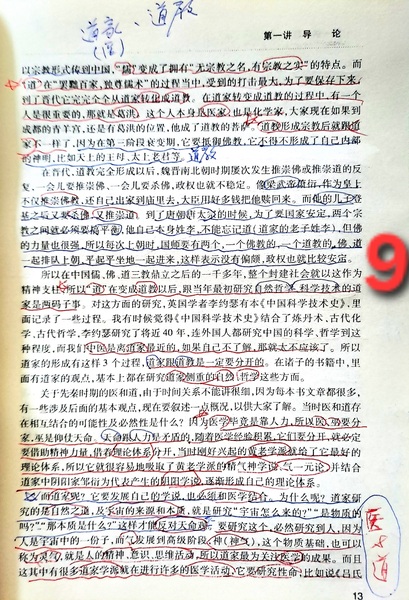 道家、道教
(宫)
第一讲 导 论
以宗教形式传到中国,“儒”变成了拥有“无宗教之名,有宗教之实”的特点。而
“道”在“罢黜百家,独尊儒术”的过程当中,受到的打击最大,为了要保存下来,
到了晋代它完完全全从道家转化成道教。在道家转变成道教的过程中,有一个
人是很重要的,那就是葛洪。这个人本身是医家,也是化学家,大家现在如果到
成都的青羊宫,还是有葛洪的位置,他成了道教的菩萨。道教形成宗教后就跟道
家不一样了,因为在第三阶段衰变期,它要抵御佛教,它不得不形成了自己内部
的神明,比如天上的王母、太上老君等。道教
在晋代,道教完全形成以后,魏晋南北朝时期屡次发生推崇佛或推崇道的反
复,一会儿要推崇佛,一会儿要杀佛,政权也就不稳定。像梁武帝萧衍,作为皇上
不仅推崇佛教,还自己出家到庙里去,大臣用好多钱把他赎回来。而他的儿子登
基之后又要杀佛,又推崇道。到了唐朝唐太宗的时候,为了要国家安定,两个宗
教之间就必须要搞平衡,他自己本身姓李,不能忘记道(道家的老子姓李),但佛
的力量也很强,所以每次上朝时,国师要有两个,一个佛教的,一个道教的,佛、道
一起排队上朝,平起平坐地一起进来,这样表示没有偏颇,政权也就比较安定。
所以在中国儒、佛、道三教鼎立之后的一千多年,整个封建社会就以这作为
精神支柱,所以“道”在变成道教以后,跟当年最初研究自然哲学、科学技术的道
家是两码子事。对这方面的研究,英国学者李约瑟有本《中国科学技术史》,里
面记录了一些过程。我有时候觉得《中国科学技术史》结合了炼丹术、古代化
学、古代哲学,李约瑟研究了将近 40 年,连外国人都研究中国的科学、哲学到这
种程度,而我们中医是离道家最近的,如果自己不了解,那就太不应该了。所以
道家的形成有这样 3 个过程,道家跟道教是一定要分开的。在诸子的书籍中,里
面有道家的观点,基本上都在研究道家侧重的自然哲学这些方面。
关于先秦时期的医和道,由于时间关系不能讲很细,因为每本书文章都很多,
有一些涉及后面的基本观点,现在要叙述一点概况,以供大家了解。当时医和道存
在相互结合的可能性及必然性是什么?因为医学毕竟是靠人力,所以医、巫要分
家,巫是抑仗天命。天命跟人力是矛盾的,随着医学经验积累,它们要分开,就必定
要借助精神力量,借着理论体系分开,当时刚好兴起的黄老学派就给了它最好的
理论体系,所以它就很容易地吸取了黄老学派的精气神学说、气一元论,并结合
道家中阴阳家邹衍为代表产生的阴阳学说,逐渐形成自己的理论体系。
而道家呢?它要发展自己的学说,也必须和医学结合。为什么呢?道家研
究的是自然之道,及宇宙的来源和本质,就是研究“宇宙怎么来的?”“是物质的
吗?”“那本质是什么?”这样才能反对天命观。要研究这个,必然研究到人,因为
人是宇宙中的一份子,而气发展到高级阶段(神(神气),这个物质基础,也可以
称为灵气,就是人的精神、意识、思维活动,所以道家最为关注医学的成果。而且
这其中有很多道家学派就在进行许多的医学活动,它要研究性命;比如说《吕氏
医与道
13
9